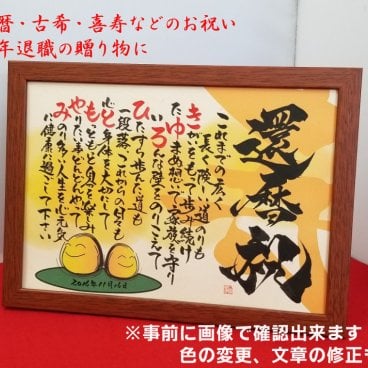 暦・古希・喜寿などのお祝い
年退職の贈り物に
還暦祝
これまでの広く
長く険しい道のりも
きがいをもって歩み続け
たゆまぬ想いで家族を守り
いろんな壁をのりこえて
ひたすら歩んだ道も
一段落、これからの自分も
心と身体を大切にして
もっと自分を楽しみ
やりたい事どんどんやって
みのり多い人生を心元気
に健康に過ごして下さい
※事前に画像で確認出来ます
色の変更、文章の修正も